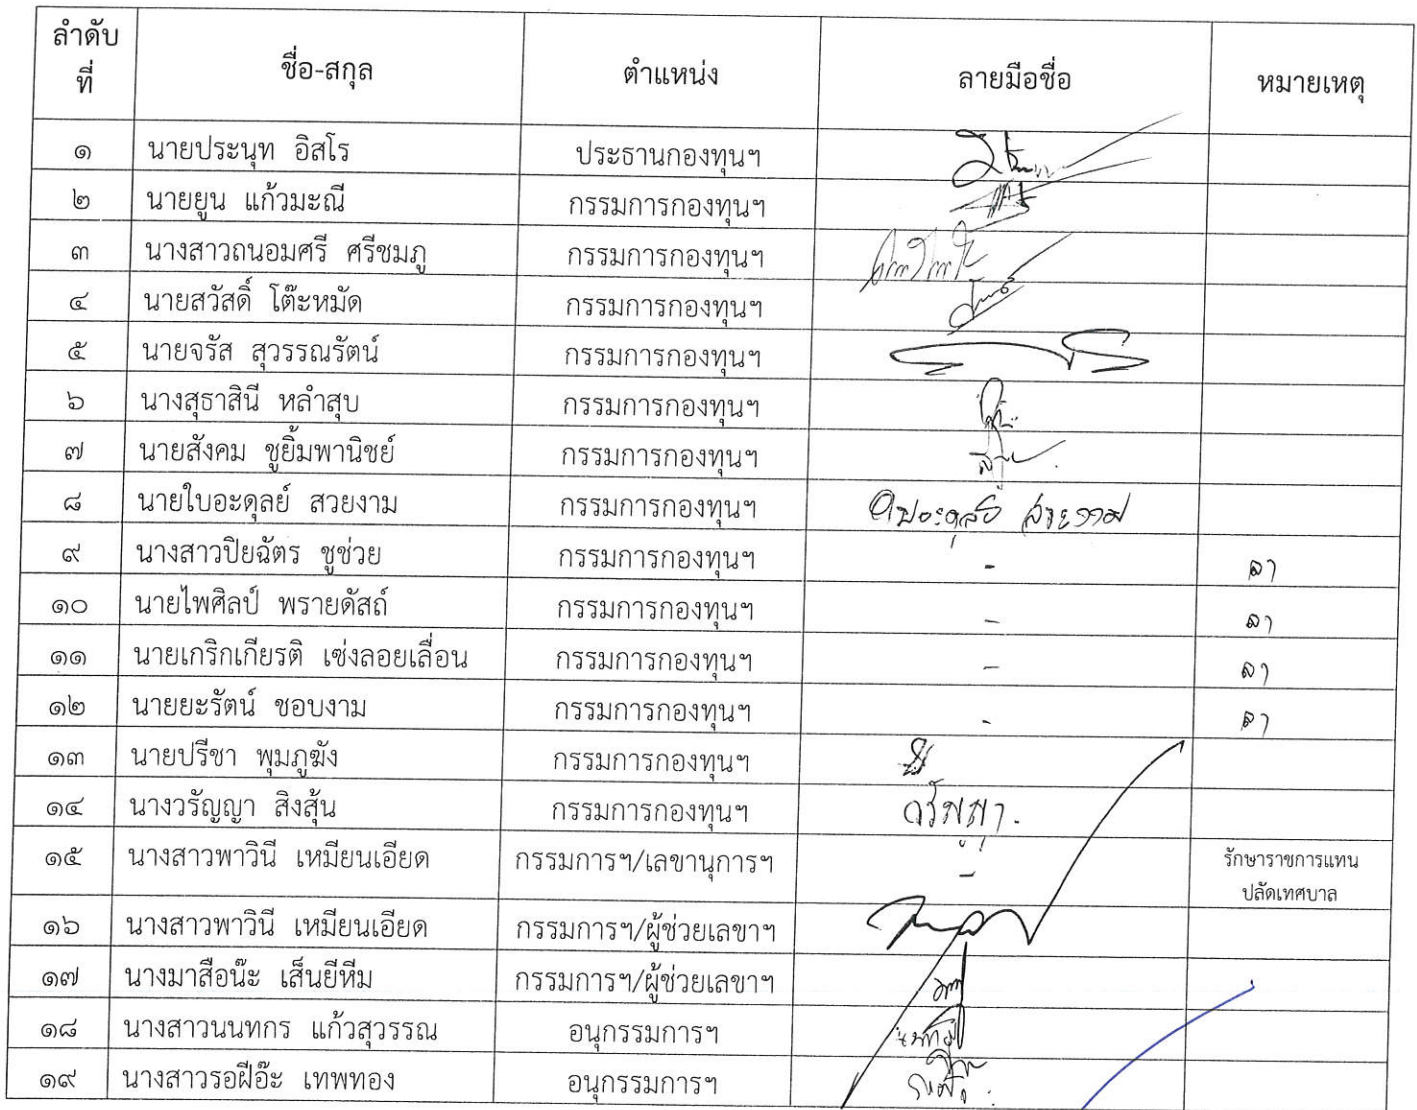 ลำดับ
ที่ ชื่อ-สกุล ตำแหน่ง ลายมือชื่อ หมายเหตุ
๑ นายประนุท อิสโร ประธานกองทุนฯ
๒ นายยูน แก้วมะณี กรรมการกองทุนฯ
๓ นางสาวถนอมศรี ศรีชมภู กรรมการกองทุนฯ
๔ นายสวัสดิ์ โต๊ะหมัด กรรมการกองทุนฯ
๕ นายจรัส สุวรรณรัตน์ กรรมการกองทุนฯ
๖ นางสุธาสินี หลำสุบ กรรมการกองทุนฯ
๗ นายสังคม ชูยิ้มพานิชย์ กรรมการกองทุนฯ
๘ นายใบอะดุลย์ สวยงาม กรรมการกองทุนฯ ใบอะดุลย์ สวยงาม
๙ นางสาวปิยฉัตร ชูช่วย กรรมการกองทุนฯ - ลา
๑๐ นายไพศิลป์ พรายดัสถ์ กรรมการกองทุนฯ - ลา
๑๑ นายเกริกเกียรติ เซ่งลอยเลื่อน กรรมการกองทุนฯ - ลา
๑๒ นายยะรัตน์ ชอบงาม กรรมการกองทุนฯ - ลา
๑๓ นายปรีชา พุมภูฆัง กรรมการกองทุนฯ
๑๔ นางวรัญญา สิงสุ้น กรรมการกองทุนฯ วรัญญา.
๑๕ นางสาวพาวินี เหมียนเอียด กรรมการฯ/เลขานุการฯ - รักษาราชการแทน
ปลัดเทศบาล
๑๖ นางสาวพาวินี เหมียนเอียด กรรมการฯ/ผู้ช่วยเลขาฯ
๑๗ นางมาสือน๊ะ เส็นยีหีม กรรมการฯ/ผู้ช่วยเลขาฯ
๑๘ นางสาวนนทกร แก้วสุวรรณ อนุกรรมการฯ
๑๙ นางสาวรอฝีอ๊ะ เทพทอง อนุกรรมการฯ